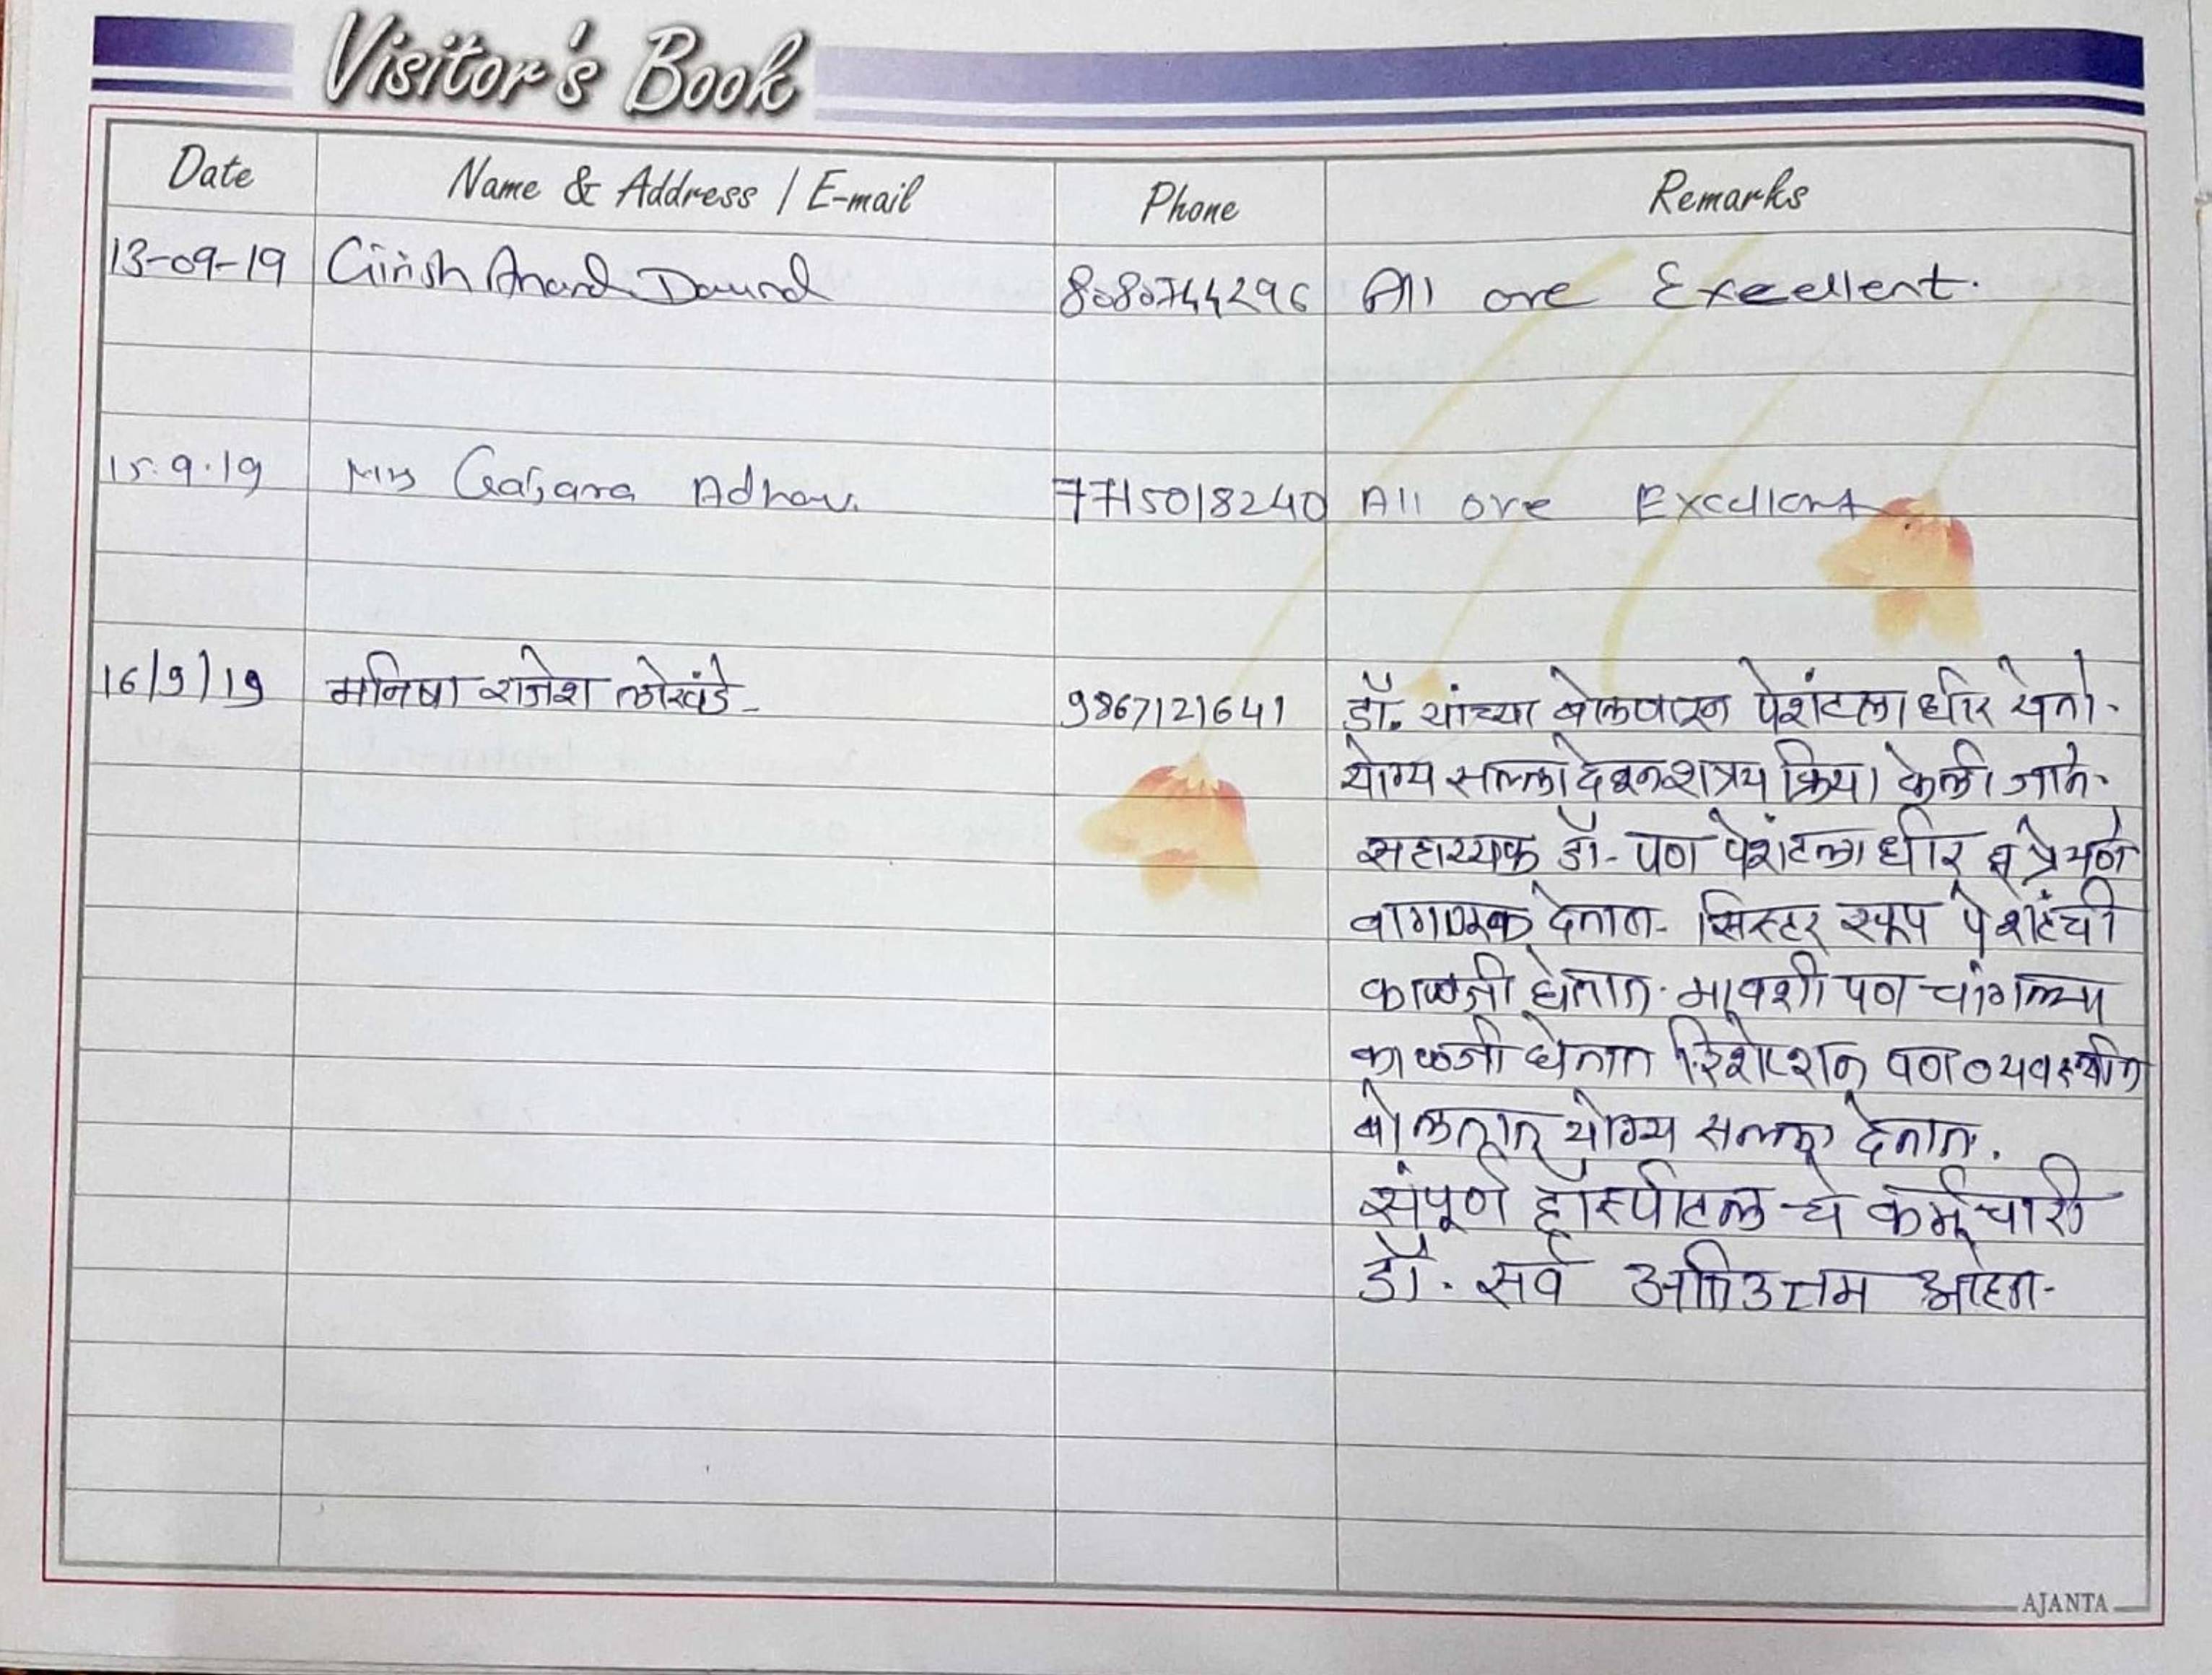 Visitor's Book
Date Name & Address / E-mail Phone Remarks
13-09-19 Girish Anand Daund 8080744296 All are Excellent.
15.9.19 Mrs Gajara Adhav. 7715018240 All are Excellent
16/9/19 मनिषा राजेश लोखंडे 9867121641 डॉ. यांच्या बोलण्यातून पेशंटला धीर येतो.
योग्य सल्ला देवून शत्रय क्रिया केली जाते.
सहाय्यक डॉ. पण पेशंटला धीर व प्रेमाणे
वागणूक देतात. सिस्टर खूप पेशंटची
काळजी घेतात. मावशी पण चांगल्या
काळजी घेतात रिशेप्शन पण व्यवस्थीत
बोलतात योग्य सल्ला देतात.
संपूर्ण हॉस्पीटल चे कर्मचारी
डॉ. सर्व अतिउत्तम आहेत.
AJANTA